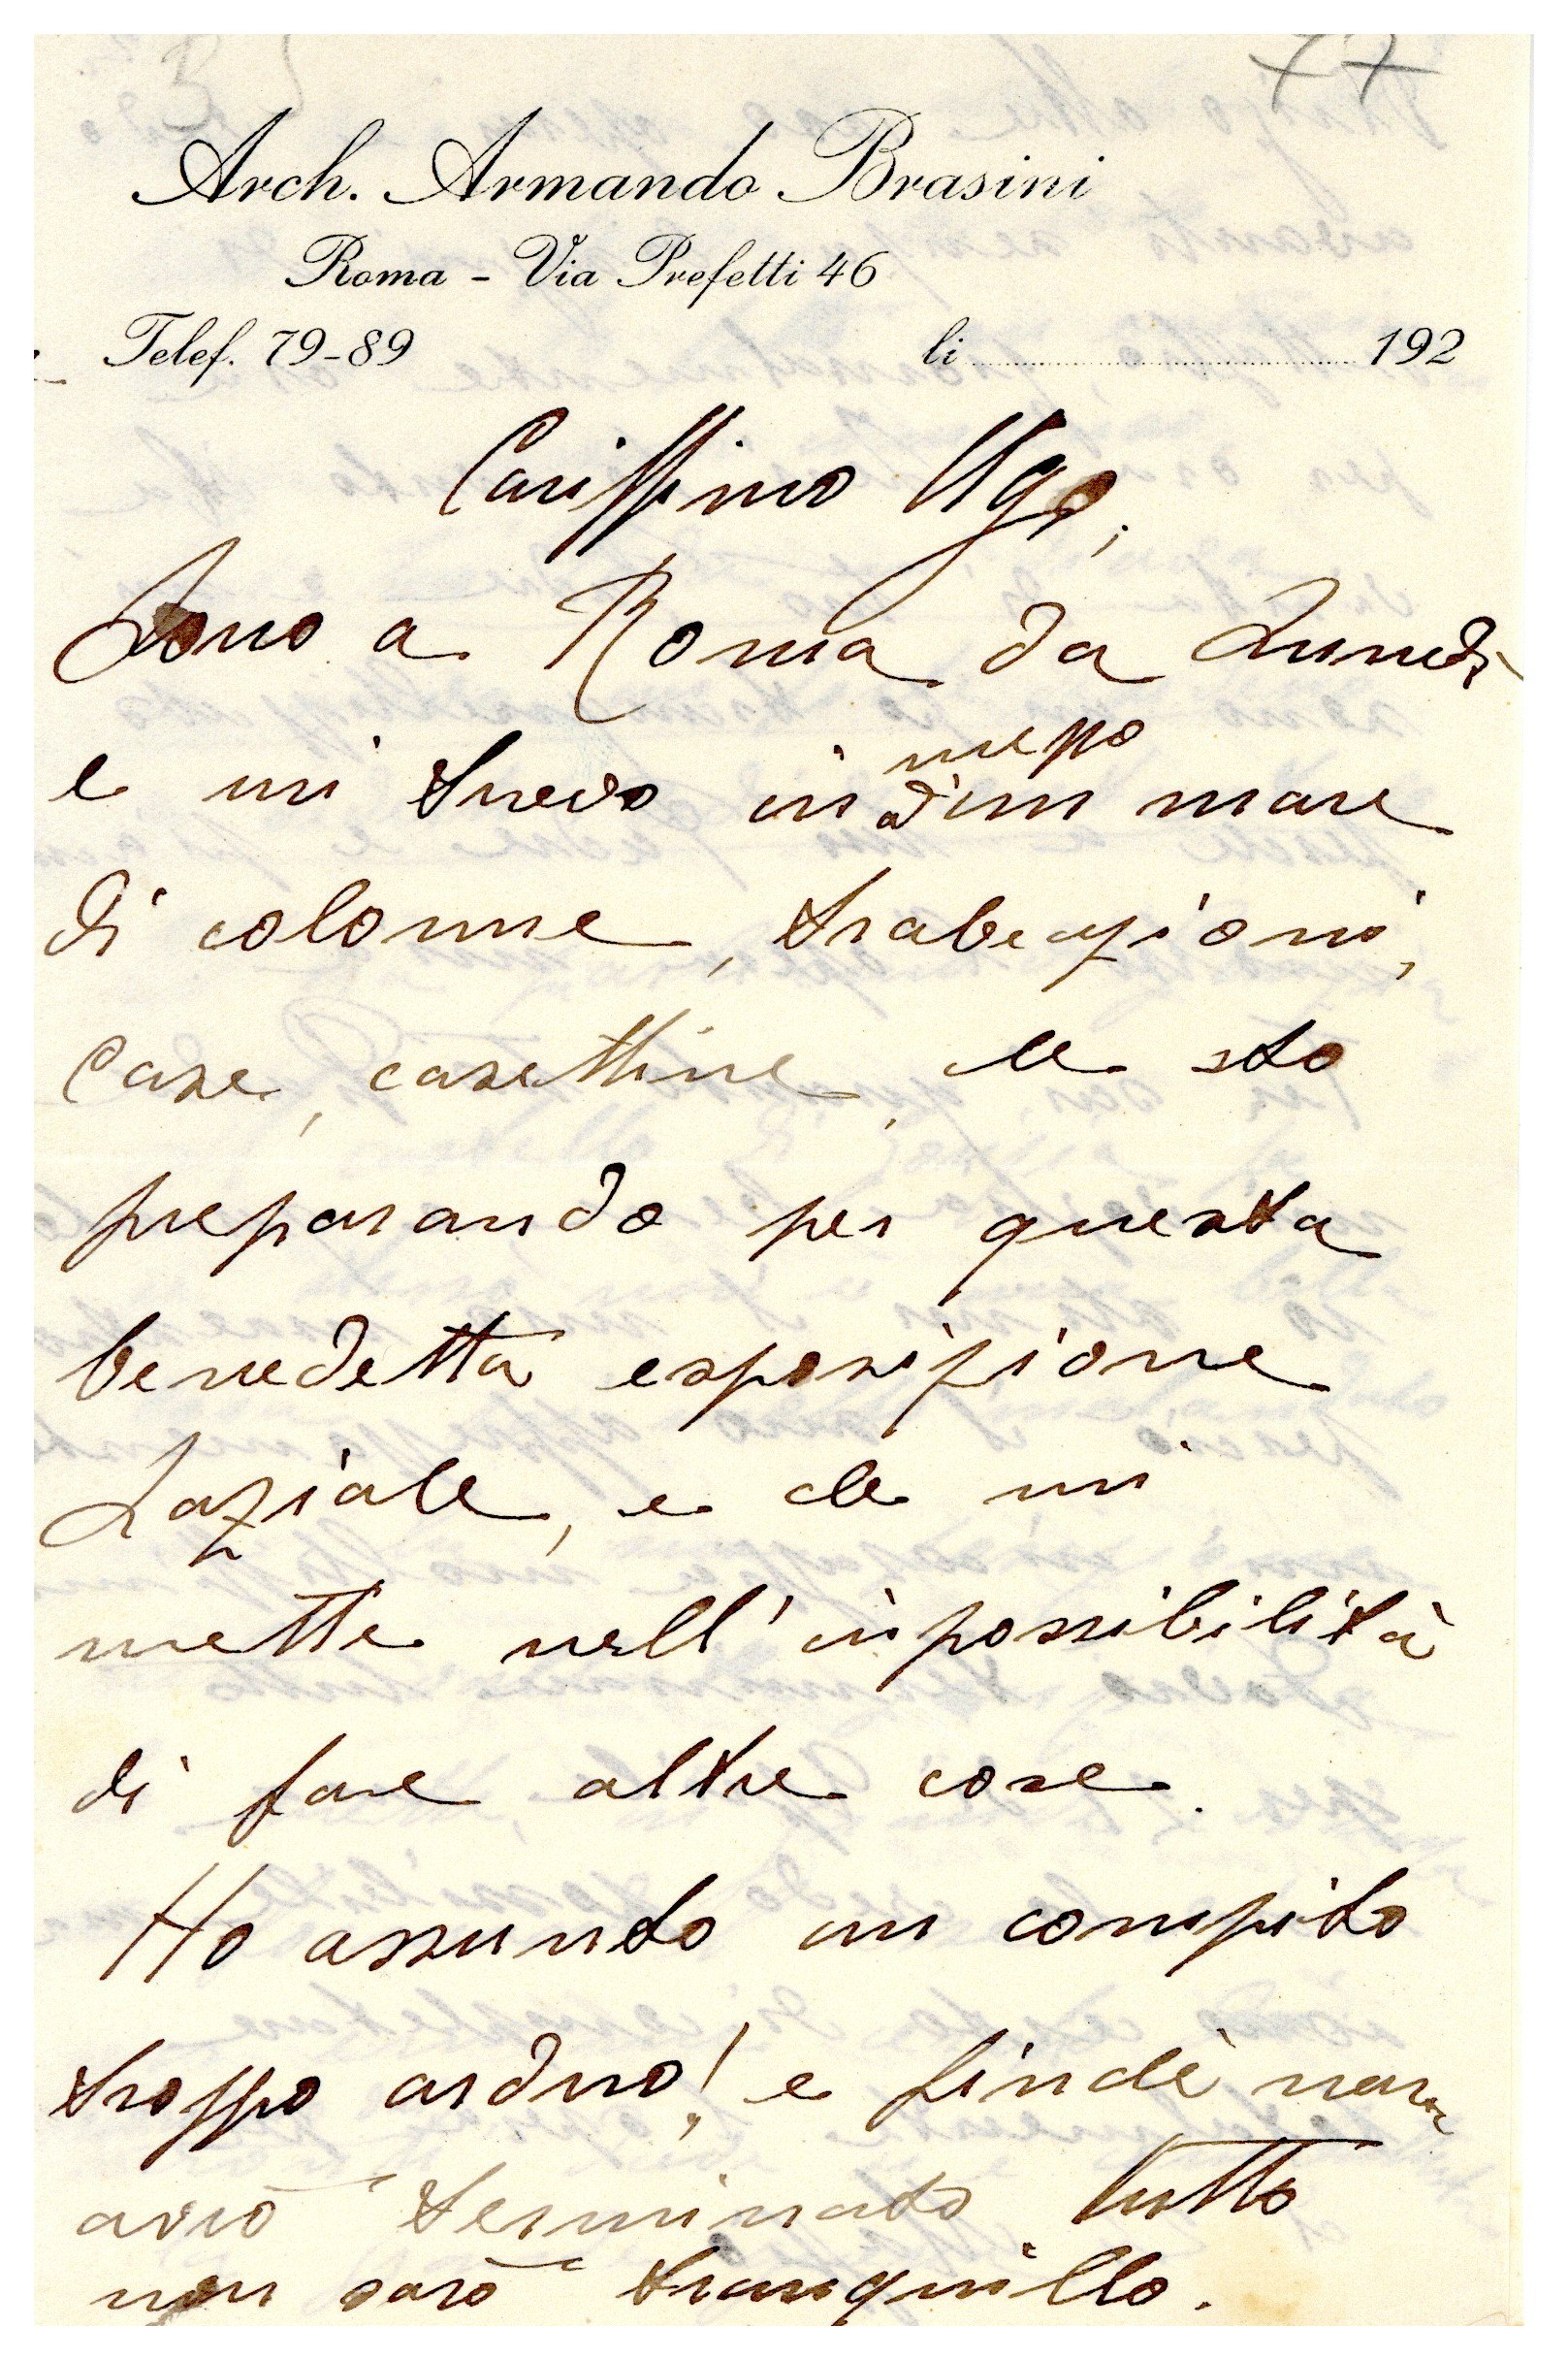 77
Arch. Armando Brasini
Roma - Via Prefetti 46
Telef. 79-89 li 192
Carissimo Ugo,
Sono a Roma da Lunedì
e mi trovo in mezzo
ad'un mare
di colonne, trabeazioni,
case, casettine, che sto
preparando per questa
benedetta esposizione
Laziale, e che mi
mette nell'inpossibilità
di fare altre cose.
Ho assunto un compito
troppo arduo! e finchè non
avrò terminato tutto
non sarò tranquillo.